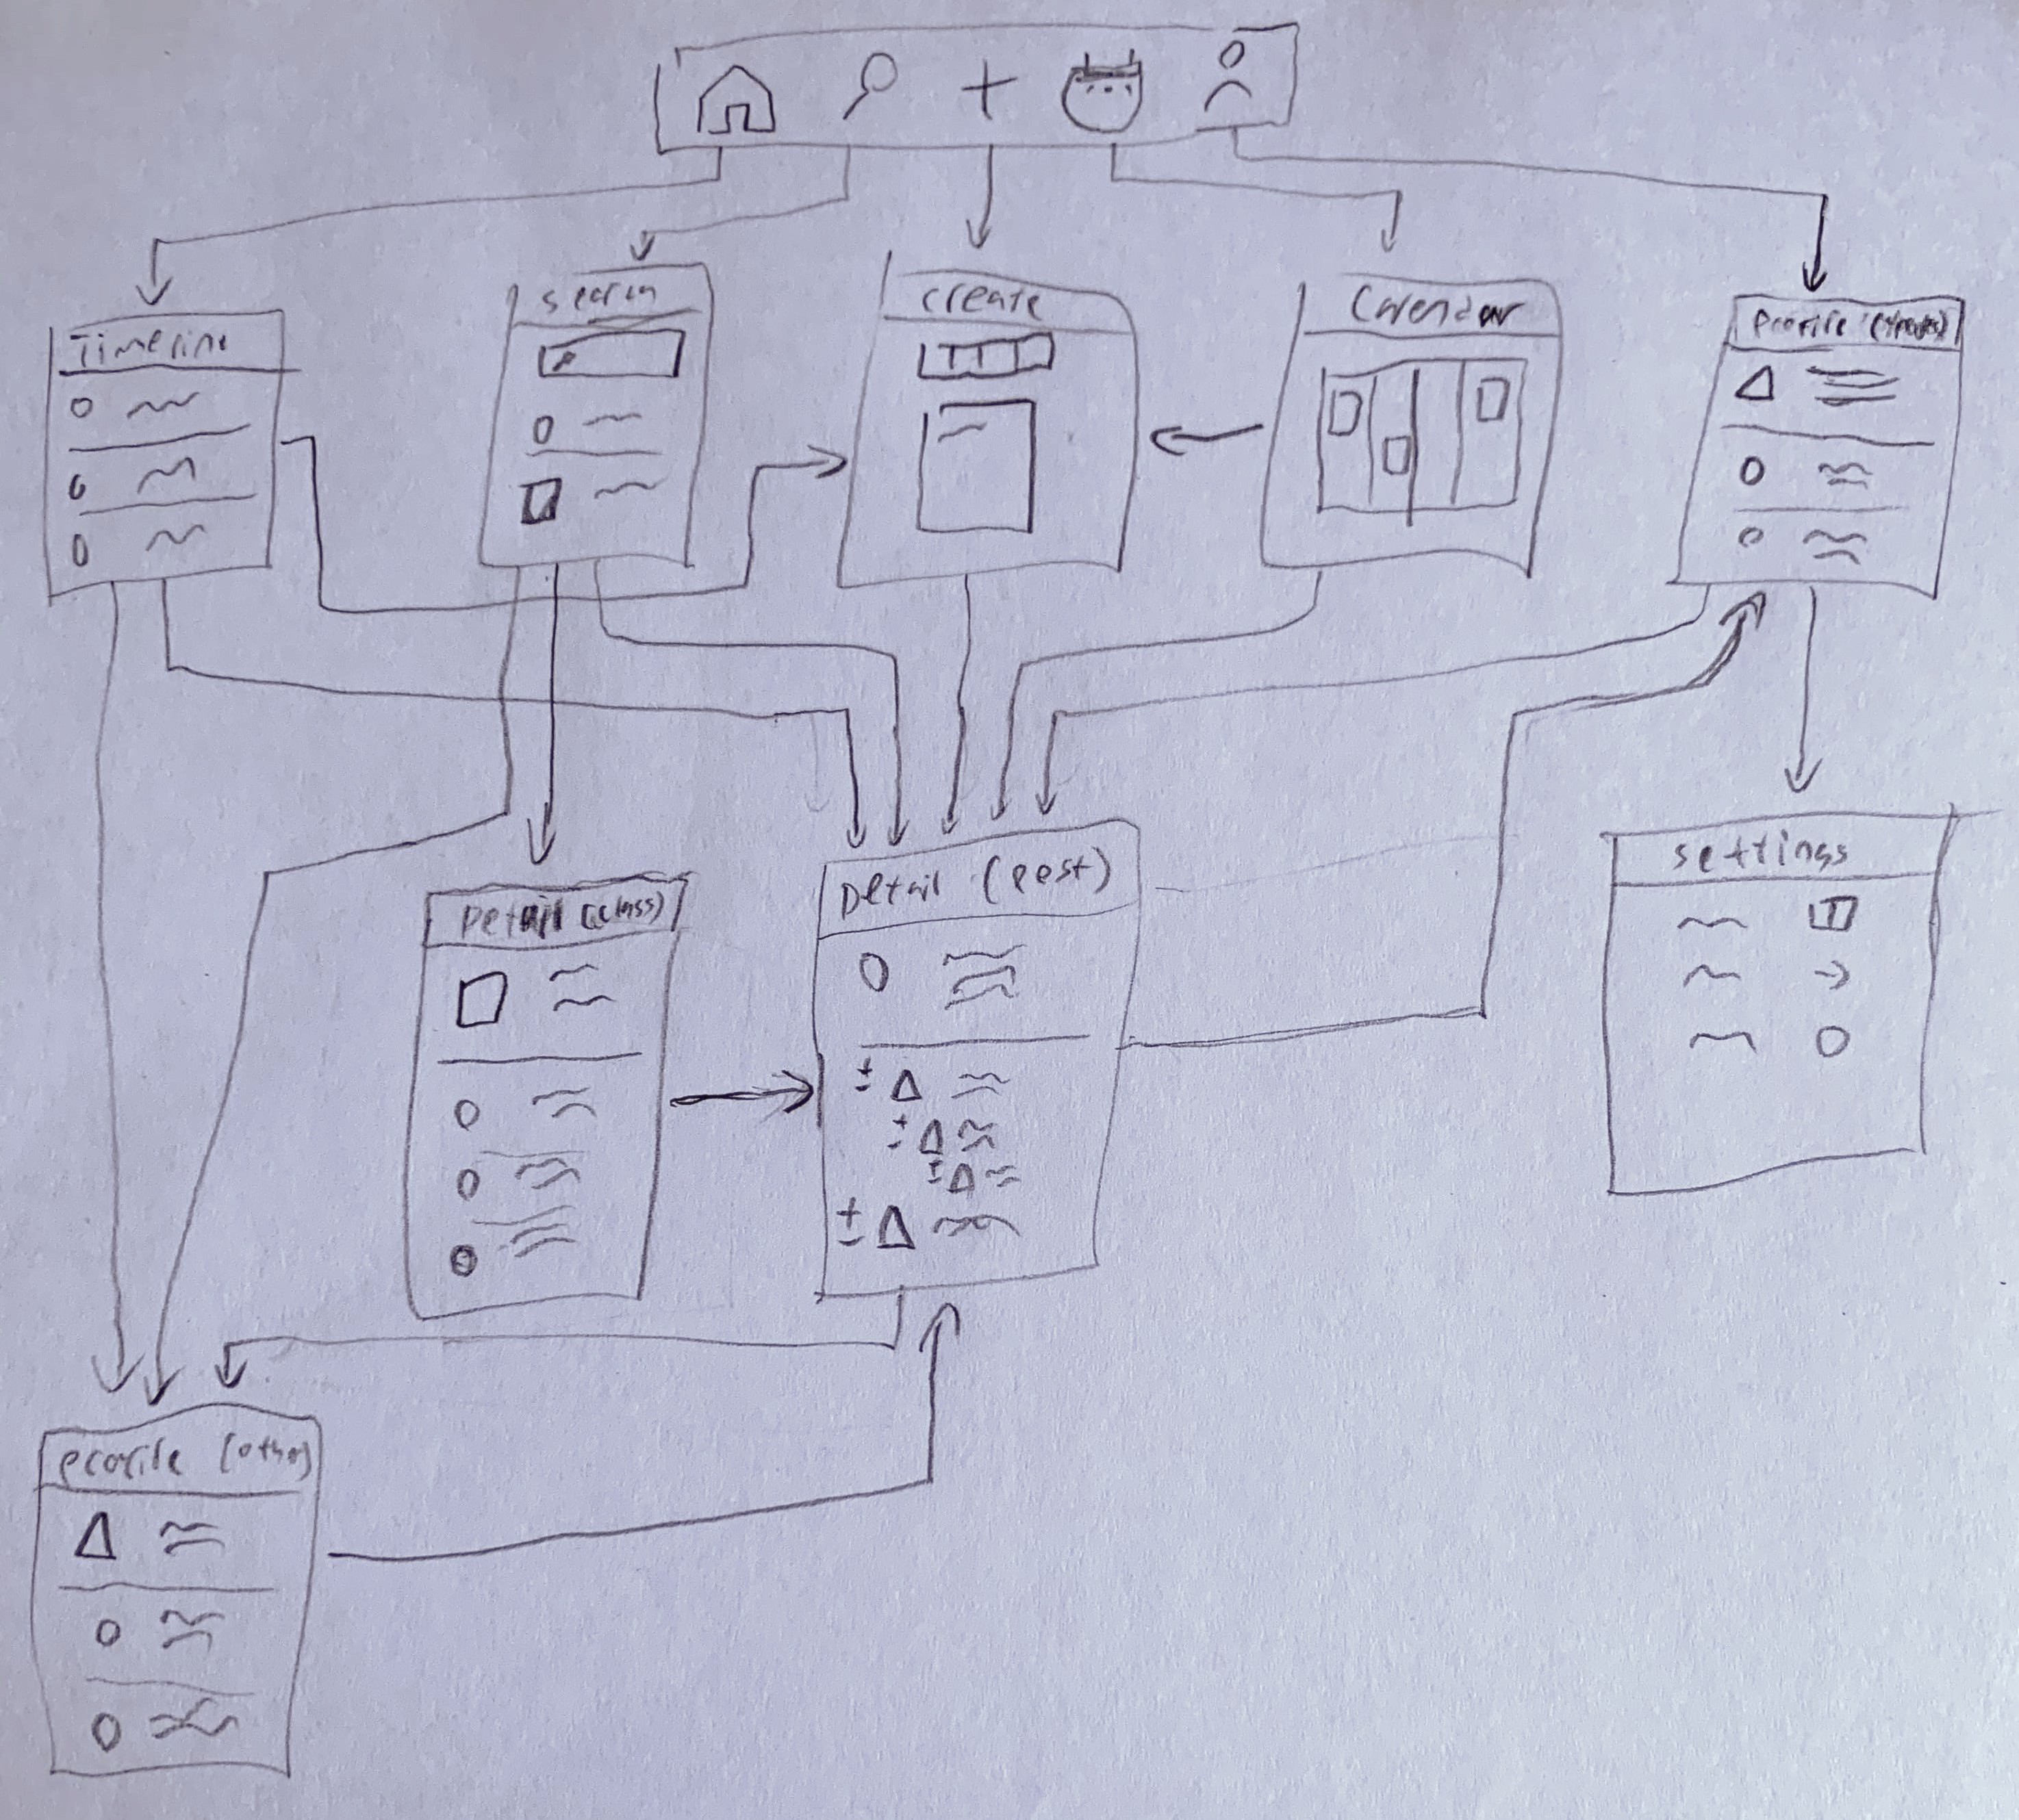 Timeline
search
create
Calendar
Profile
Detail (class)
Detail (post)
settings
profile (other)